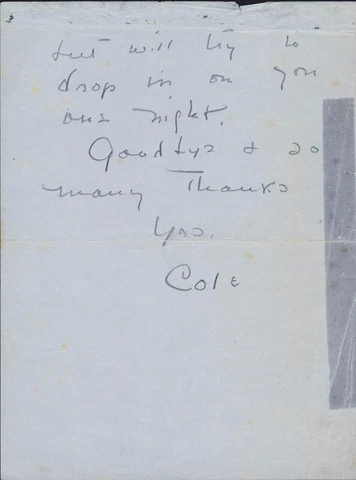 but will try to
drop in on you
one night.
Goodbye & so
many Thanks
Yrs.
Cole